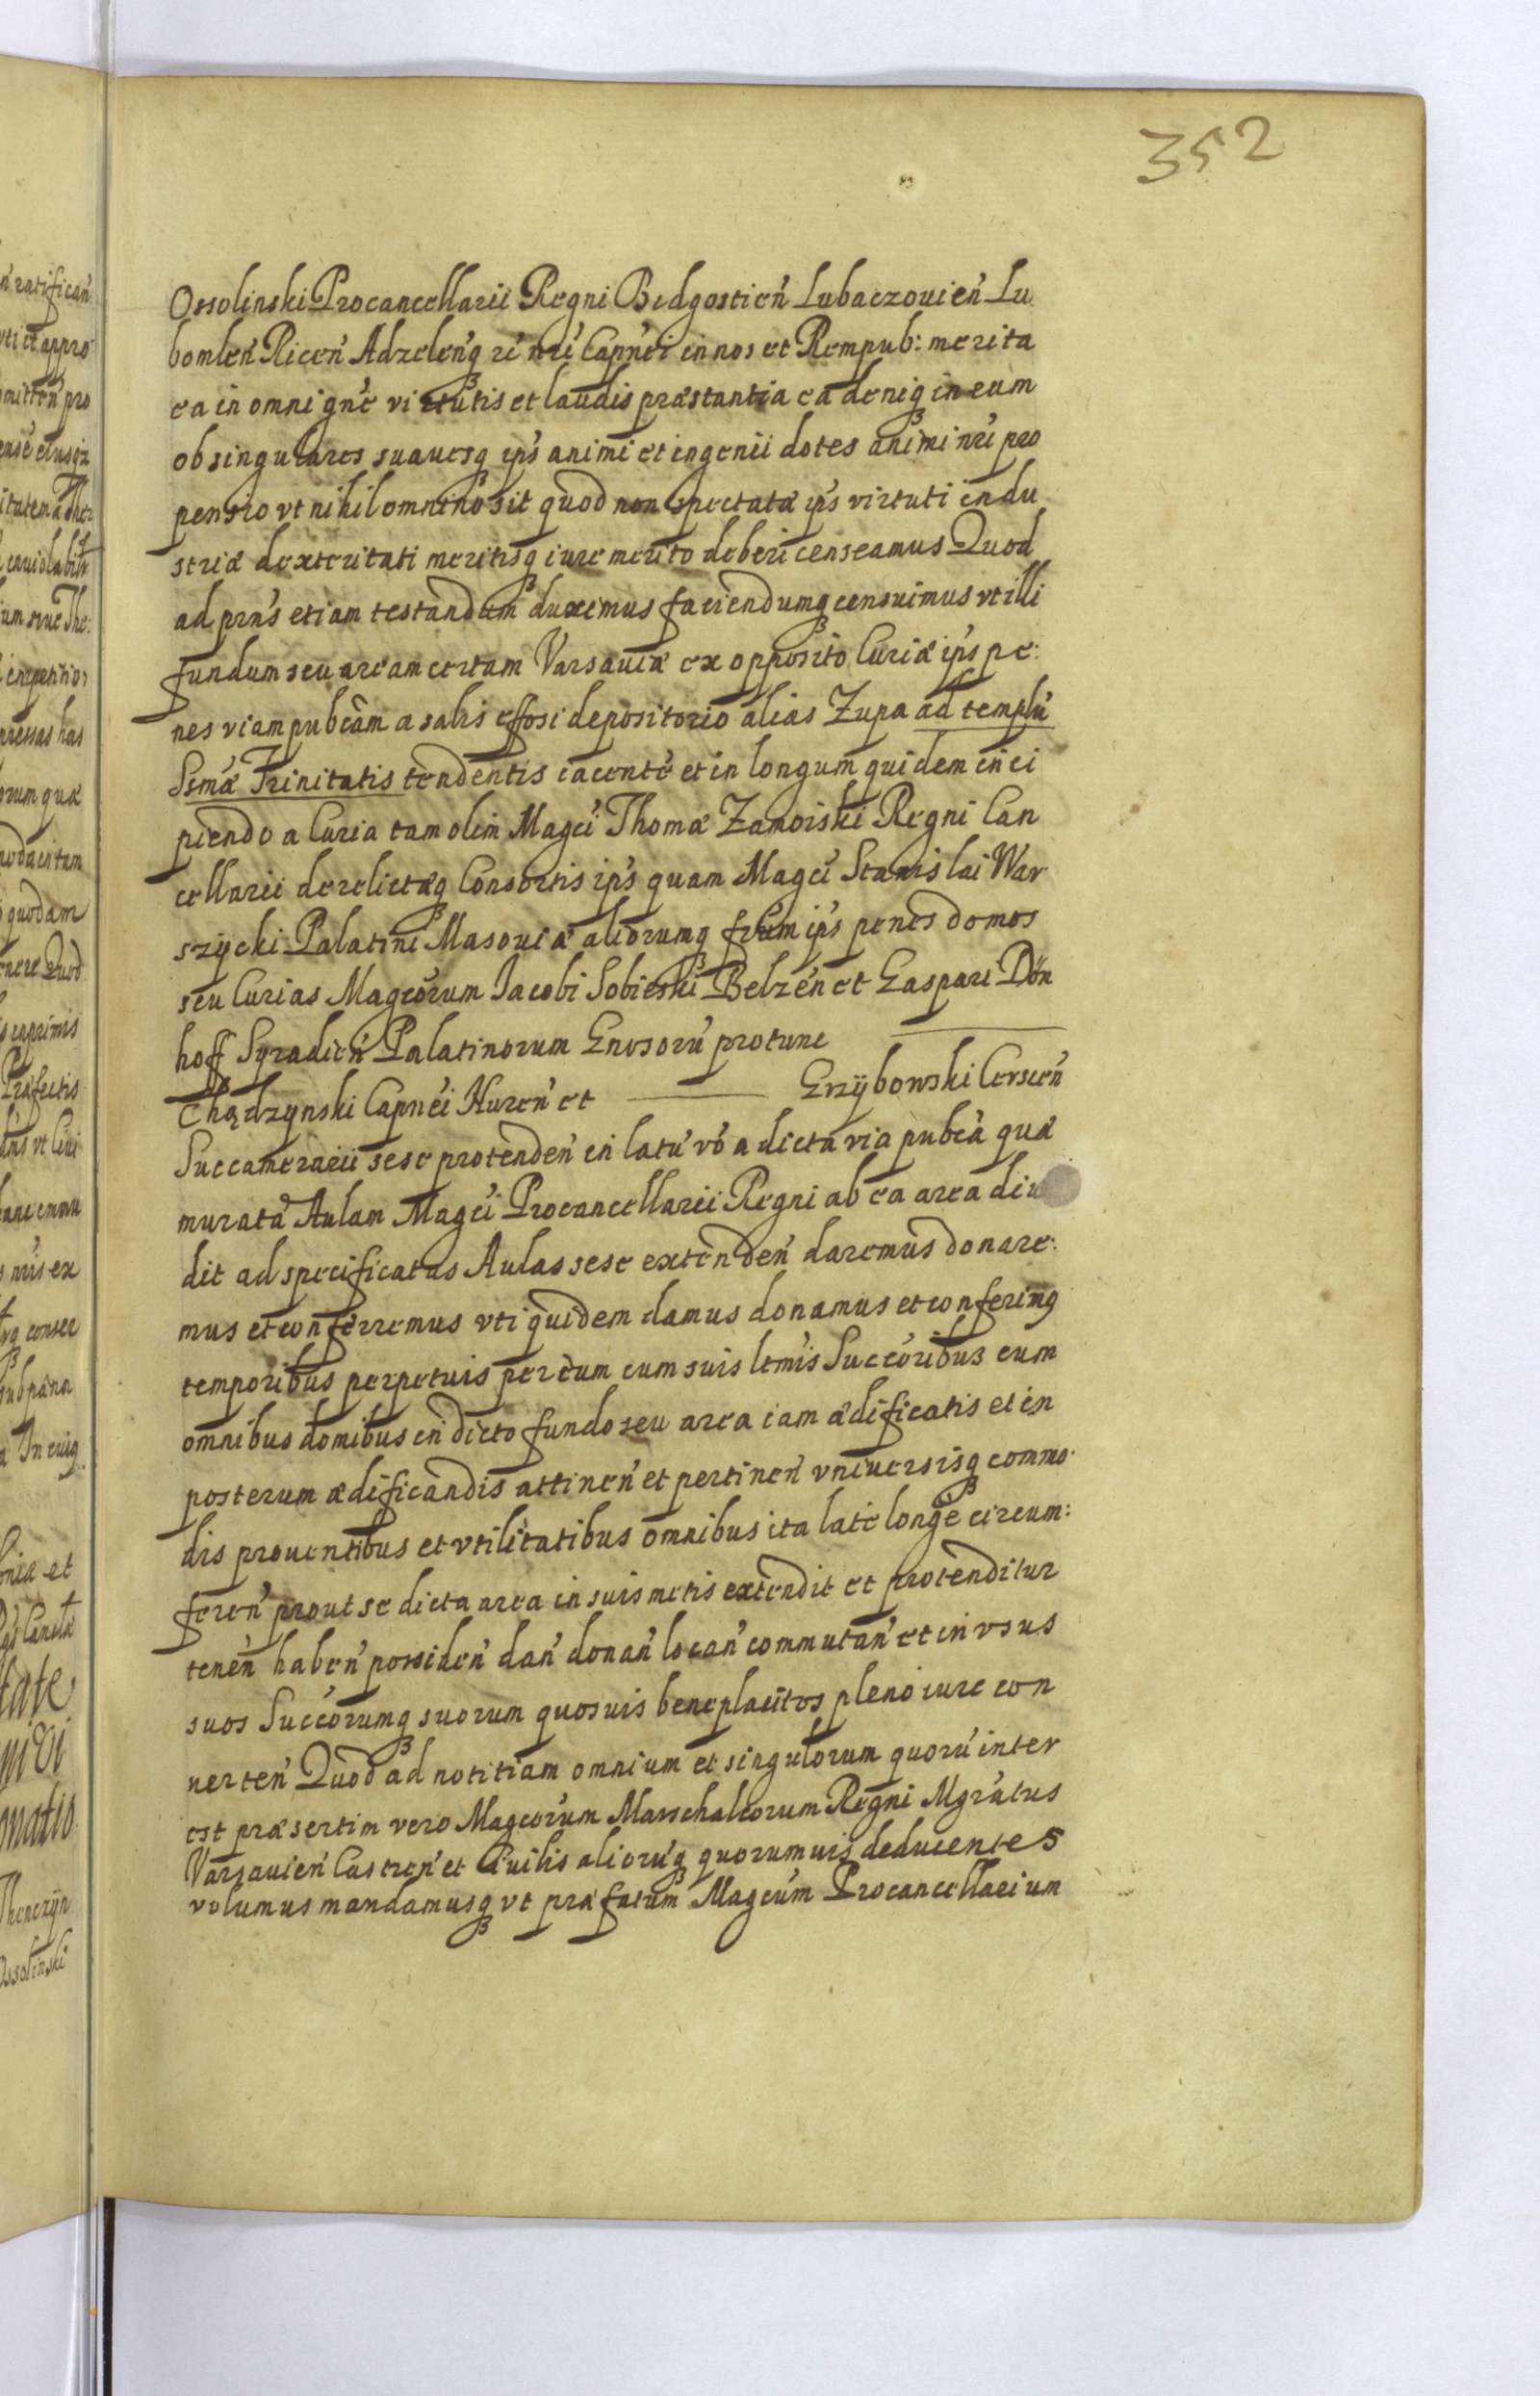 352
Ossolinski Procancellarii Regni Bidgostień Lubaczouień Lu
bomleń Riceń Adzeleńq ri nri Capn'ei in nos et Rempub: merita
ea in omni gn'e virtutis et laudis præstantia ea deniq in eum
ob singulares suauesq ips animi et ingenii dotes animi nri pro
pensio vt nihil omnino sit quod non spectatæ ips virtuti indu
striæ dexteritati meritisq iure merito deberi censeamus Quod
ad prn's etiam testandum duximus faciendumq censuimus vt illi
fundum seu aream certam Varsauiæ ex opposito Curiæ ips pe:
nes viam pubcam a salis effosi depositorio alias Zupa ad templu
Ssmæ Trinitatis tendentis iacente et in longum quidem in ci
piendo a Curia tam olim Magci Thomæ Zamoiski Regni Can
cellarii derelictæq Consortis ips quam Magci Stanislai War
szÿcki Palatini Masouiæ aliorumq frum ips penes domos
seu Curias Magcorum Iacobi Sobieski Belzeń et Gaspari Dön
hoff Syradień Palatinorum Gnosoru protunc
Chądzynski Capn'ei Nureń et Grzÿbowski Cerseń
Succamerarii sese protendeń in latu vo a dicta via pubca quæ
murata Aulam Magci Procancellarii Regni ab ea area diu
dit ad specificatas Aulas sese extendeń daremus donare:
mus et conferremus vti quidem damus donamus et conferimq
temporibus perpetuis per eum cum suis ltmis Succoribus cum
omnibus domibus in dicto fundo seu area iam ædificatis et in
posterum ædificandis attineń et pertineń vniuersisq commo
dis prouentibus et vtilitatibus omnibus ita late longe circum:
fereń prout se dicta area in suis metis extendit et protenditur
teneń habeń possideń dań donań locań commutań et in vsus
suos Succorumq suorum quosuis beneplacitos pleno iure con
uerteń Quod ad notitiam omnium et singulorum quoru inter
est præsertim vero Magcorum Marschalcorum Regni Mgratus
Varsauień Castreń et Ciuilis alioruq quorumuis deducentes
volumus mandamusq vt præfatum Magcum Procancellarium